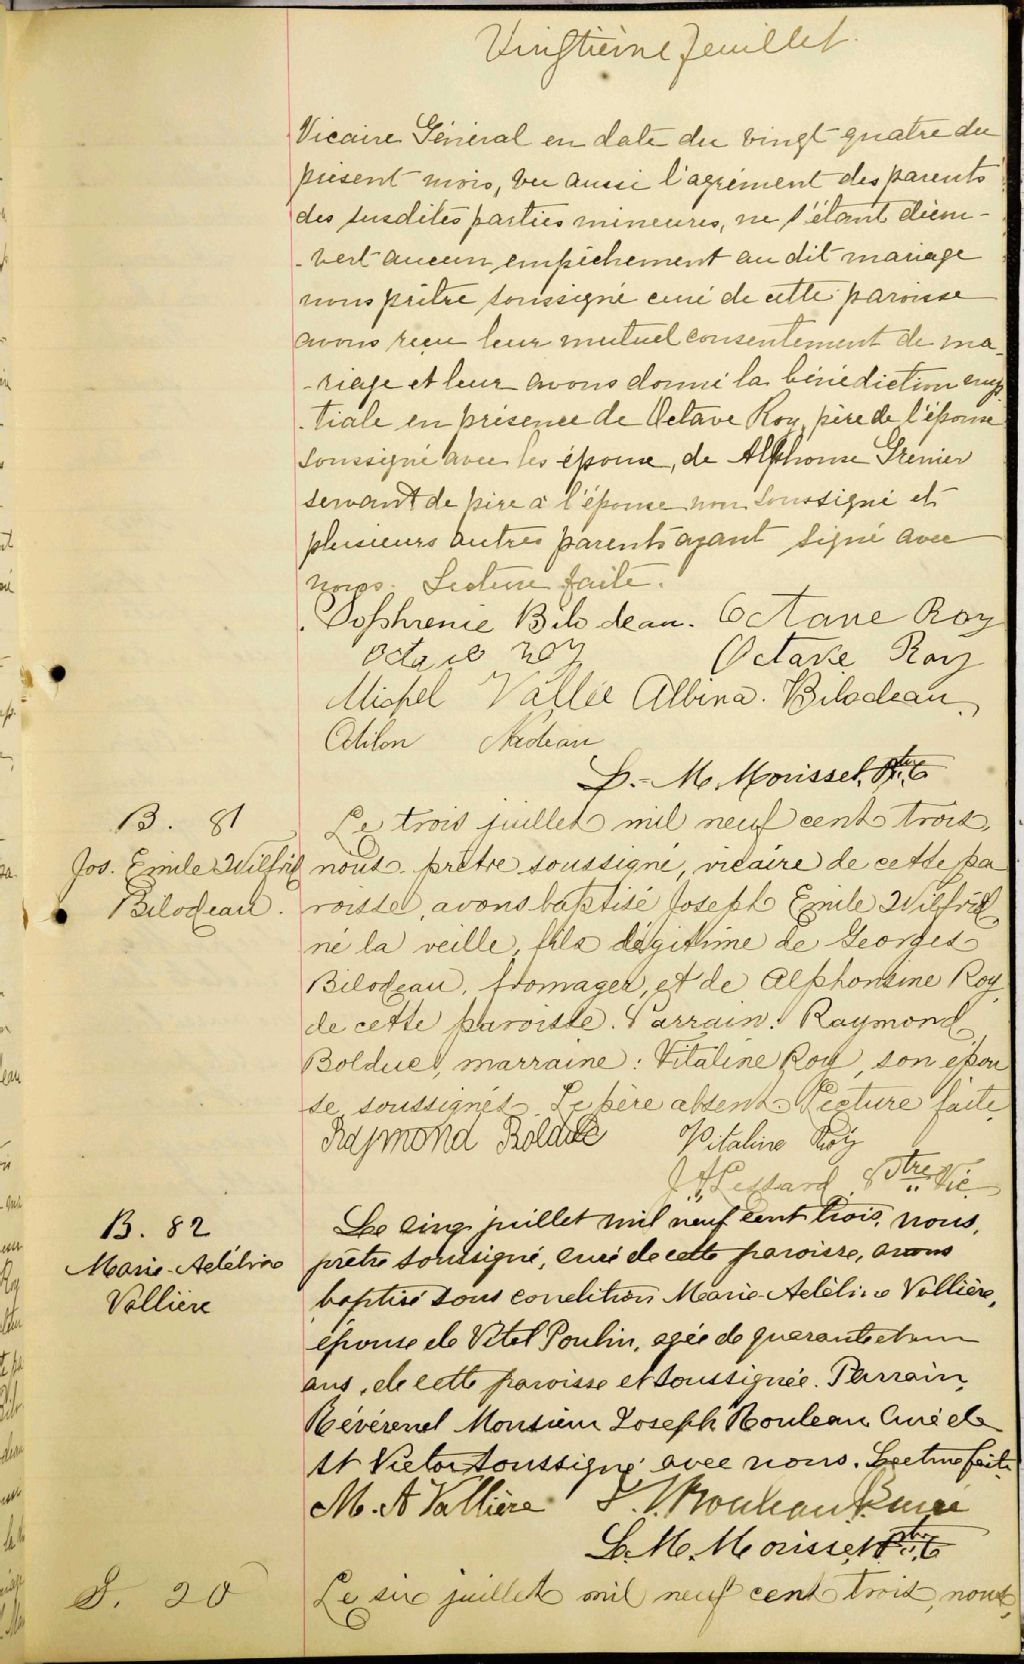 Vingtième feuillet.
Vicaire Général en date du vingt quatre du
présent mois, vu aussi l'agrément des parents
des susdites parties mineures, ne s'étant décou-
-vert aucun empêchement au dit mariage
nous prêtre soussigné curé de cette paroisse
avons reçu leur mutuel consentement de ma-
-riage et leur avons donné la bénédiction nup
-tiale en présence de Octave Roy, père de l'époux
soussigné avec les époux, de Alphonse Grenier
servant de père à l'épouse non soussigné et
plusieurs autres parents ayant signé avec
nous. Lecture faite.
Sophrenie Bilodeau. Octave Roy
Octave Roy Octave Roy
Michel Vallée Albina. Bilodeau
Odilon Nadeau
L.-M. Morisset, Ptre C
B. 81
Jos. Emile Wilfrid
Bilodeau.
Le trois juillet mil neuf cent trois,
nous prêtre soussigné, vicaire de cette pa
roisse, avons baptisé Joseph Emile Wilfrid,
né la veille, fils légitime de Georges
Bilodeau, fromager, et de Alphonsine Roy
de cette paroisse. Parrain: Raymond
Bolduc, marraine: Vitaline Roy, son épou
se soussignés. Le père absent. Lecture faite
Raymond Bolduc Vitaline Roy
J A Lessard Ptre Vic
B. 82
Marie-Adéline
Vallière
Le cinq juillet mil neuf cent trois, nous,
prêtre soussigné, curé de cette paroisse, avons
baptisé sous condition Marie-Adéline Vallière,
épouse de Vital Poulin, agée de quarante et un
ans, de cette paroisse et soussignée. Parrain,
Révérend Monsieur Joseph Rouleau Curé de
St Victor soussigné avec nous. Lecture faite
M. A Vallière J. Rouleau Ptre Curé
L. M. Morisset Ptre C
S. 20
Le six juillet mil neuf cent trois, nous,